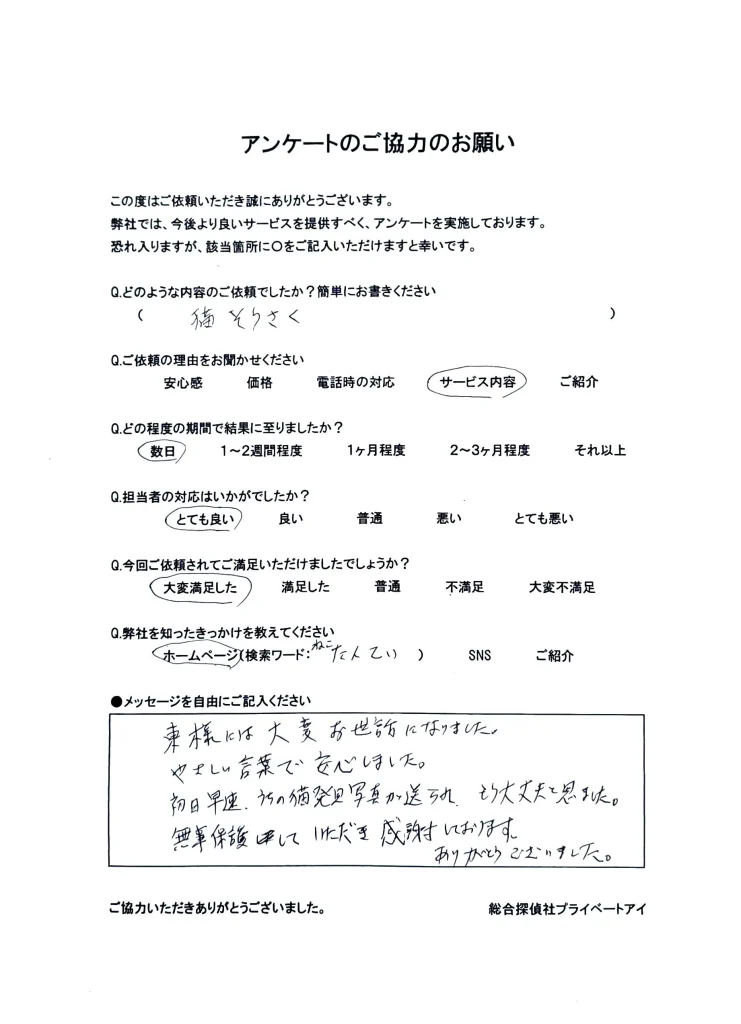 アンケートのご協力のお願い
この度はご依頼いただき誠にありがとうございます。
弊社では、今後より良いサービスを提供すべく、アンケートを実施しております。
恐れ入りますが、該当箇所に〇をご記入いただけますと幸いです。
Q.どのような内容のご依頼でしたか？簡単にお書きください
（ 猫 そうさく ）
Q.ご依頼の理由をお聞かせください
安心感 価格 電話時の対応 サービス内容 ご紹介
Q.どの程度の期間で結果に至りましたか？
数日 1～2週間程度 1ヶ月程度 2～3ヶ月程度 それ以上
Q.担当者の対応はいかがでしたか？
とても良い 良い 普通 悪い とても悪い
Q.今回ご依頼されてご満足いただけましたでしょうか？
大変満足した 満足した 普通 不満足 大変不満足
Q.弊社を知ったきっかけを教えてください
ホームページ（検索ワード：ねこたんてい ） SNS ご紹介
●メッセージを自由にご記入ください
東様には大変お世話になりました。
やさしい言葉で安心しました。
初日早速、うちの猫発見写真が送られ、もう大丈夫と思ました。
無事保護 して いただき 感謝しております。
ありがとうございました。
ご協力いただきありがとうございました。 総合探偵社プライベートアイ